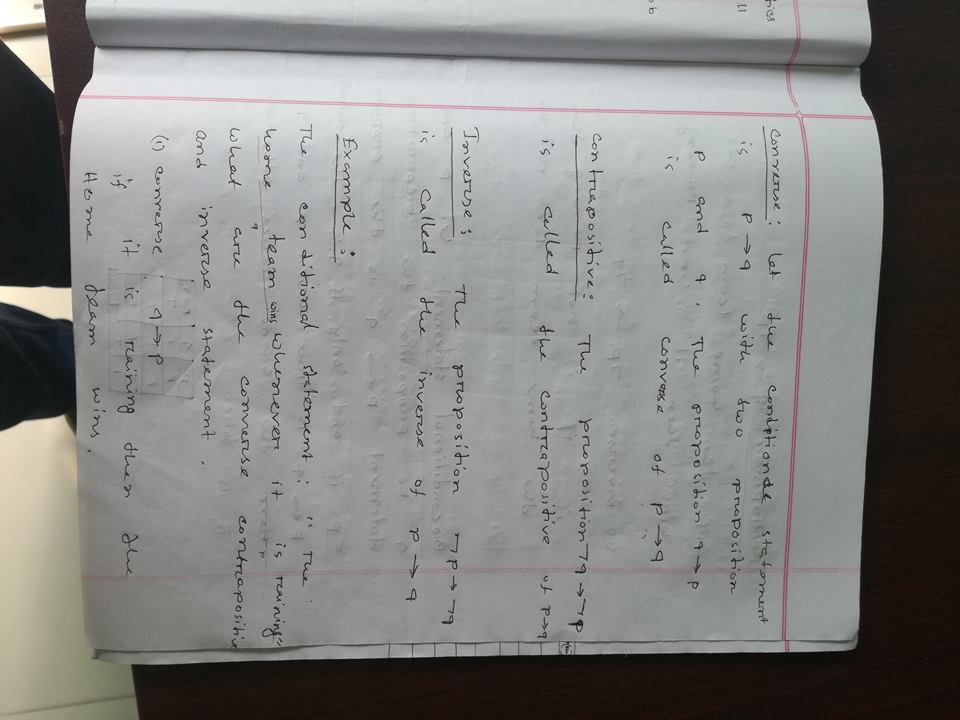 Converse: Let the conditionde statement
is p → q with two proposition
p and q. The proposition q → p
is called converse of p → q
Contrapositive: The proposition ¬q → ¬p
is called the contrapositive of p → q
Inverse: The proposition ¬p → ¬q
is called the inverse of p → q
Example:
The conditional statement: "The
home team wins whenever it is raining"
q
What are the converse contrapositive
and inverse statement.
(1) converse q → p
if it is raining then the
Home team wins.